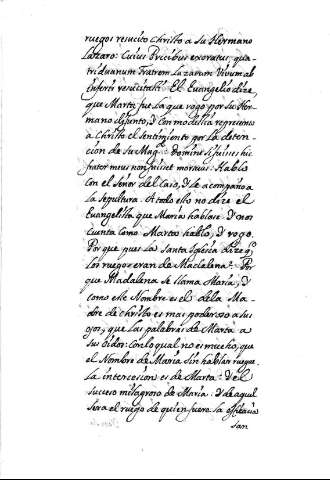 ruegos resucito Christo a su Hermano
Lazaro: Cuius Precibus exoratus, qua-
triduanum Fratrem Lazarum Vivum ab
inferis resuscitasti. El Evangelio dize,
que Marta fue la que rogo por su Her-
mano difunto, y con modestia represento
a Christo el sentimiento por la deten-
ción de su Mag.d Domine si fuises hic
frater meus non fuiset mortuus. Hablo
con el Señor del caso, y le acompaño a
la sepultura. A todo ello no dize el
Evangelista que Maria hablase. y nos
cuenta como Marta hablo, y rogo.
Por que pues la Santa Iglesia dize q.
los ruegos eran de Maclalena? Por
que Madalena se llama Maria, y
como este Nombre es el de la Ma-
dre de Christo es mas poderoso a sus
ojos, que las palabras de Marta a
sus oidos: con lo qual no es mucho, que
el Nombre de Maria sin hablar ruegue.
La intercesion es de Marta: y el
suceso milagroso de Maria: y de aquel
sera el ruego de quien fuere la eficacia
san